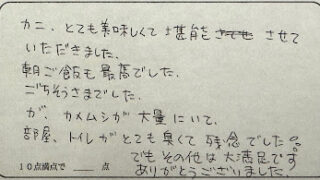 カニ、とても美味しくて堪能させて
いただきました。
朝ご飯も最高でした。
ごちそうさまでした。
が、カメムシが大量にいて、
部屋、トイレがとても臭くて残念でした。
でもその他は大満足です
10点満点で ___ 点
ありがとうございました。